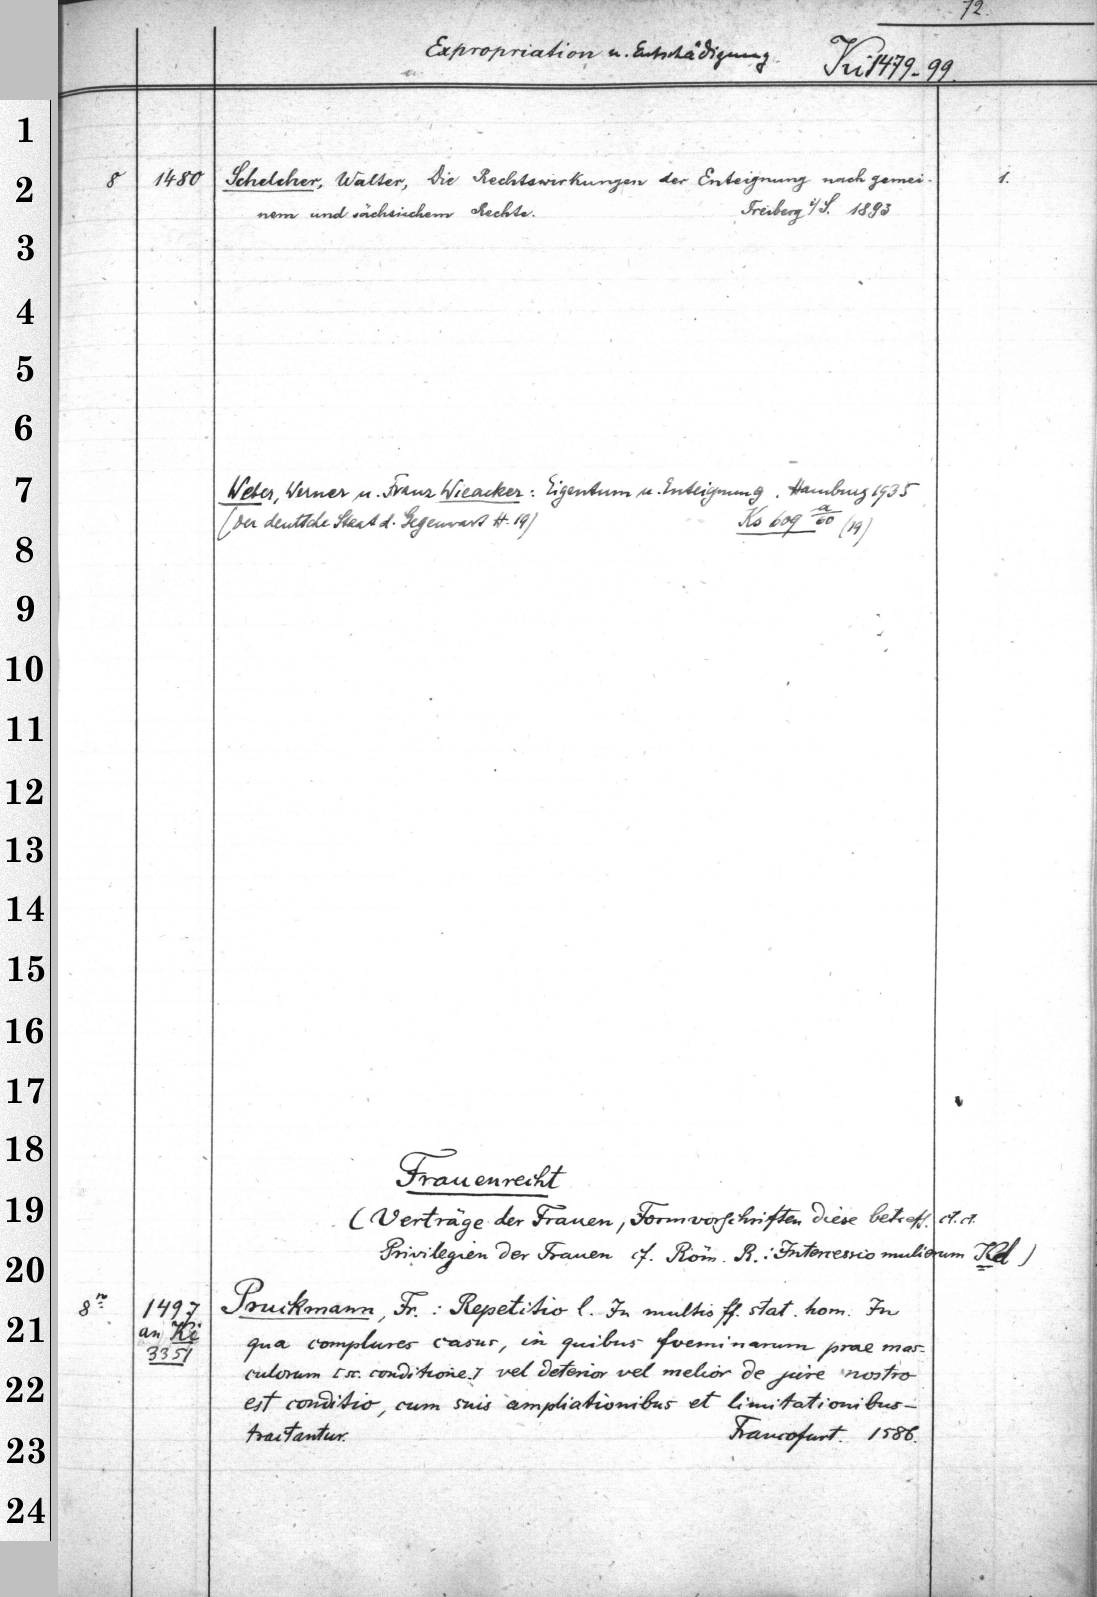 72.
Expropriation u. Entschädigung Ki 1479-99.
1
2
3
4
5
6
7
8
9
10
11
12
13
14
15
16
17
18
19
20
21
22
23
24
8 1480 Schelcher, Walter, Die Rechtswirkungen der Enteignung nach gemei- 1.
nem und sächsischem Rechte. Freiberg i/S. 1893
Weber, Werner u. Franz Wieacker: Eigentum u. Enteignung. Hamburg 1935
(Der deutsche Staat d. Gegenwart H. 19) Ks 609 a/60 (19)
Frauenrecht
(Verträge der Frauen, Formvorschriften diese betreff. ct. ct.
Privilegien der Frauen cf. Röm. R.: Intercessio mulierum Kd)
8° 1497 Pruckmann, Fr.: Repetitio l. In multis ff. stat. hom. In
an Ki qua complures casus, in quibus foeminarum prae mas-
3351 culorum [sc. conditione] vel deterior vel melior de jure nostro
est conditio, cum suis ampliationibus et limitationibus
tractantur. Francofurt. 1586.